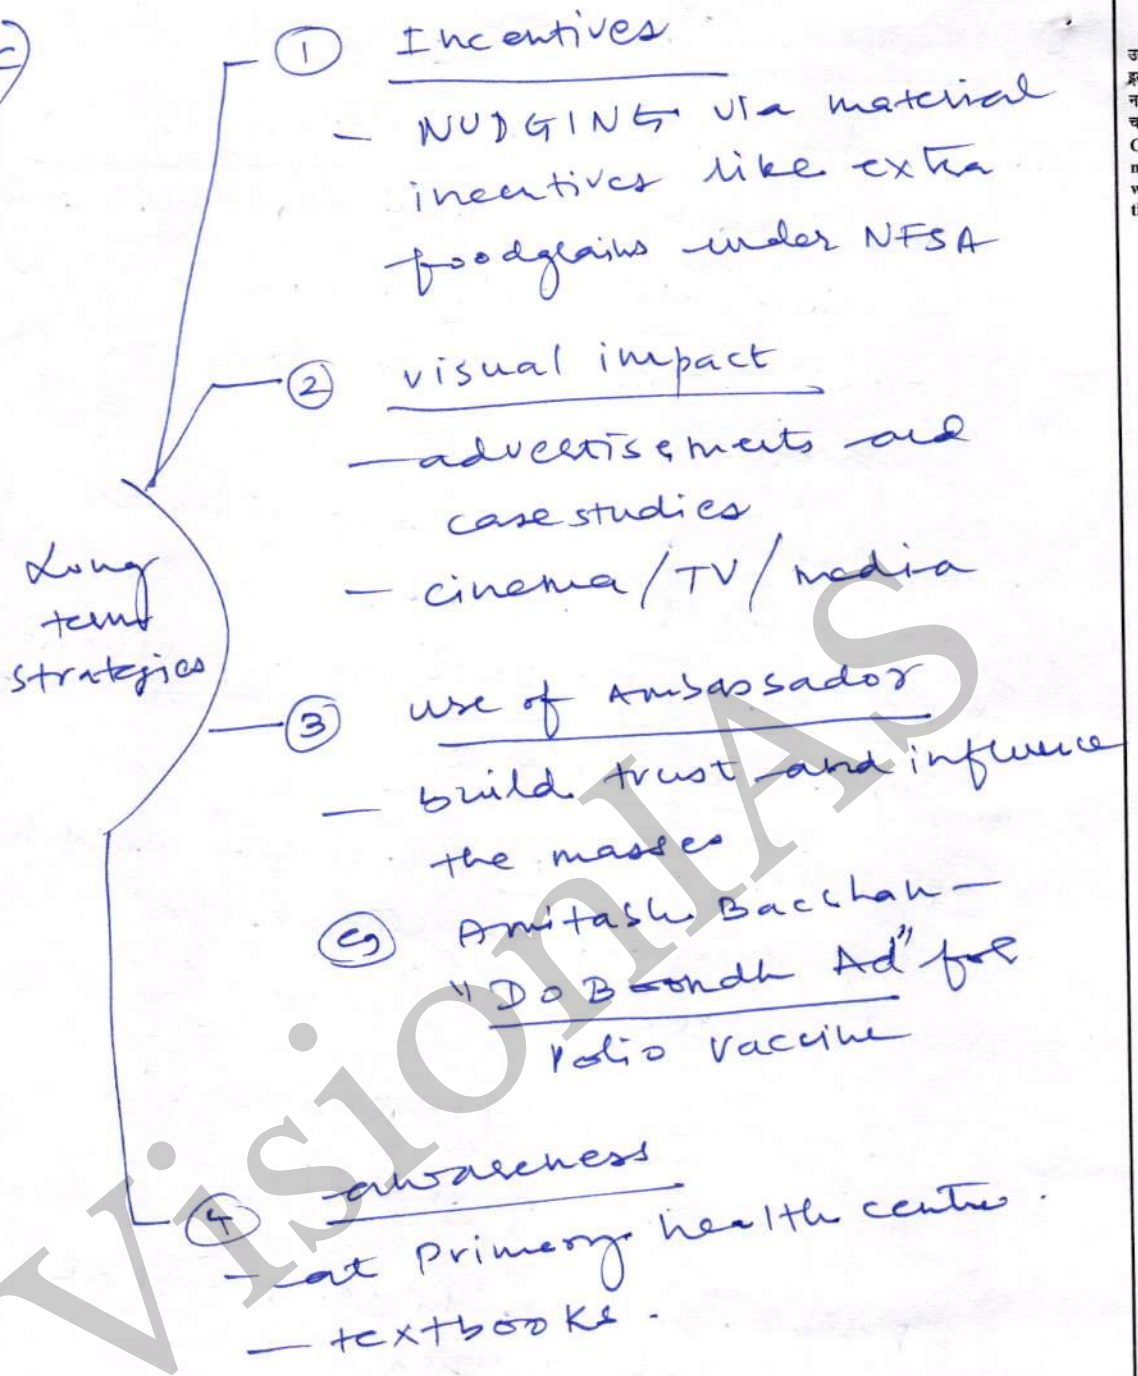 ① Incentives
- NUDGING via material
incentives like extra
foodgrains under NFSA
② visual impact
- advertisements and
case studies
- cinema/TV/media
Long
term
strategies
③ use of Ambassador
- build trust and influence
the masses
eg Amitash Bacchan -
"Do Boondh Ad" for
Polio vaccine
④ awareness
- at Primary health centre.
- textbooks.
VisionIAS